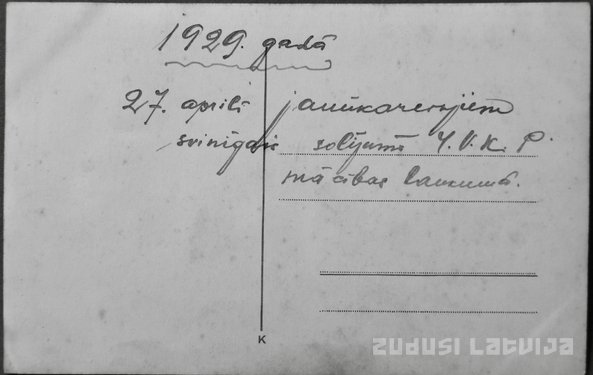 1929. gadā
27. aprīlī jaunkareivjiem
svinīgais solījums 4.V.K.P.
mācības laukumā.
K
ZUDUSI LATVIJA